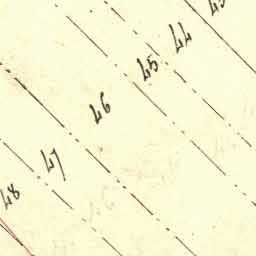 48
47
46
45
44